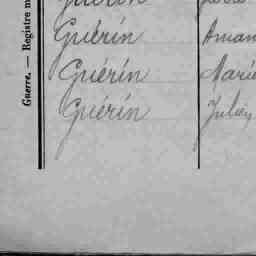 Guérin
Guérin Aman
Guérin Marie
Guérin Julien
Guerre. — Registre m